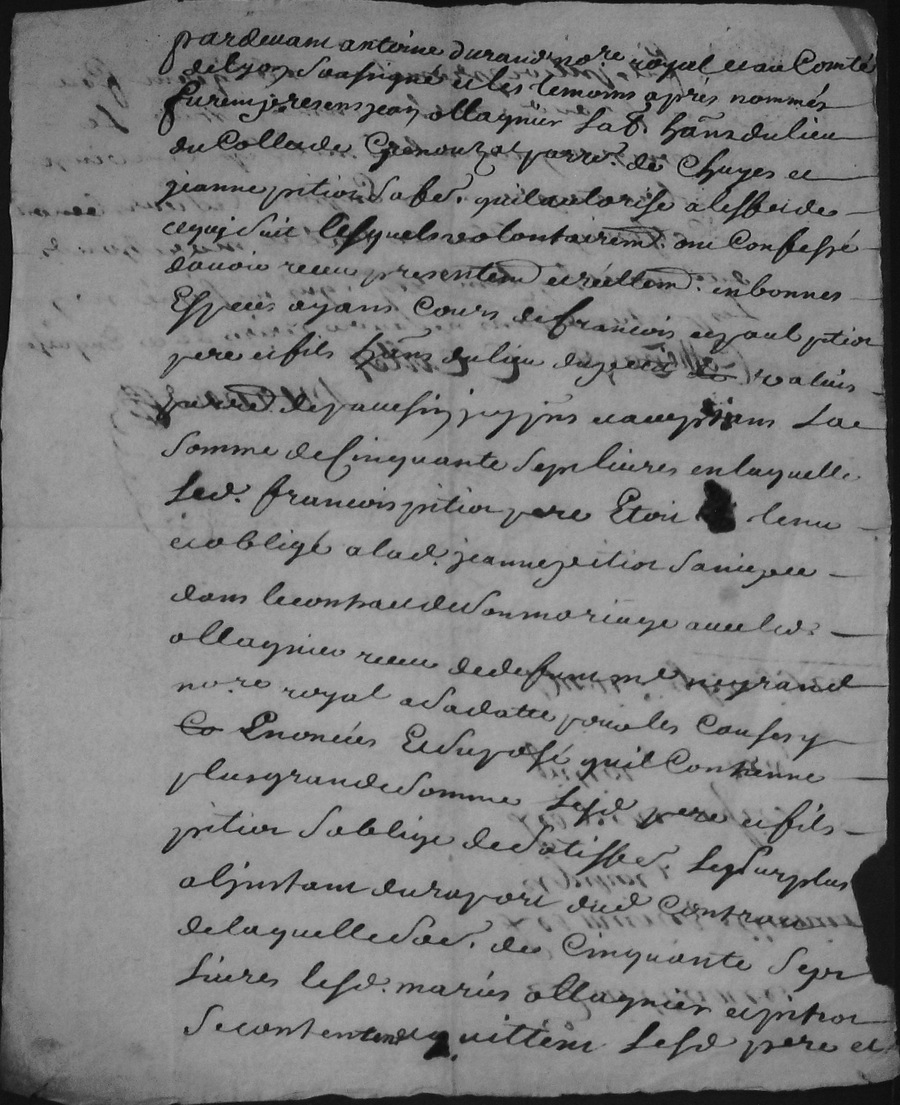 pardevant antoine durand no.re royal et au Comté
de lyon soussigné et les temoins apres nommés
furent presens jean ollagnier lab. hans du lieu
du Collet de Grenouzat parre. de Chuyes et
jeanne pitiot sa fe. quil autorise a leffet de
ce quj suit lesquels volontairem. ont Confessé
davoir receu presentem et réellem. en bonnes
Especes ayans Cours de francois et paul pitiot
pere et fils hans du lieu de
parre. de pavesin jcy pns et acceptans La
somme de Cinquante Sept livres en laquelle
Led. francois pitiot pere Etoit tenu
et obligé a lad. jeanne pitiot sa niepce
dans le contract de son mariage avec led.
ollagnier receu de deffunt me neyrand
no.re royal a sa datte pour les Causes y
Enoncées Et suposé quil Contienne
plus grande somme Lesd pere et fils
pitiot soblige de satisfe. Le surplus
en justant du raport dud Contract
de laquelle so.e. de Cinquante Sept
Livres lesd. mariés ollagnier et pitiot
se contentent quittent Lesd pere et